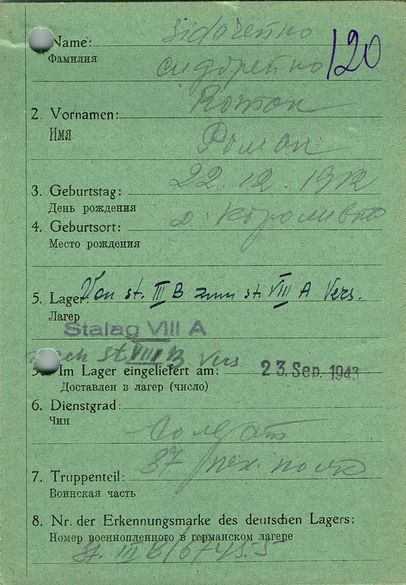 Name: Sidorenko
Фамилия Сидоренко
120
2. Vornamen: Roman
Имя Роман
3. Geburtstag: 22.12.1912
День рождения
4. Geburtsort: д. Короливка
Место рождения
5. Lager: Von St. III B zum St. VIII A Vers.
Лагер
Stalag VIII A
nach St. VIII B Vers
Im Lager eingeliefert am: 23. Sep. 1943
Доставлен в лагер (число)
6. Dienstgrad:
Чин Солдат
37 пех. полк
7. Truppenteil:
Воинская часть
8. Nr. der Erkennungsmarke des deutschen Lagers:
Номер военнопленного в германском лагере
St. III B